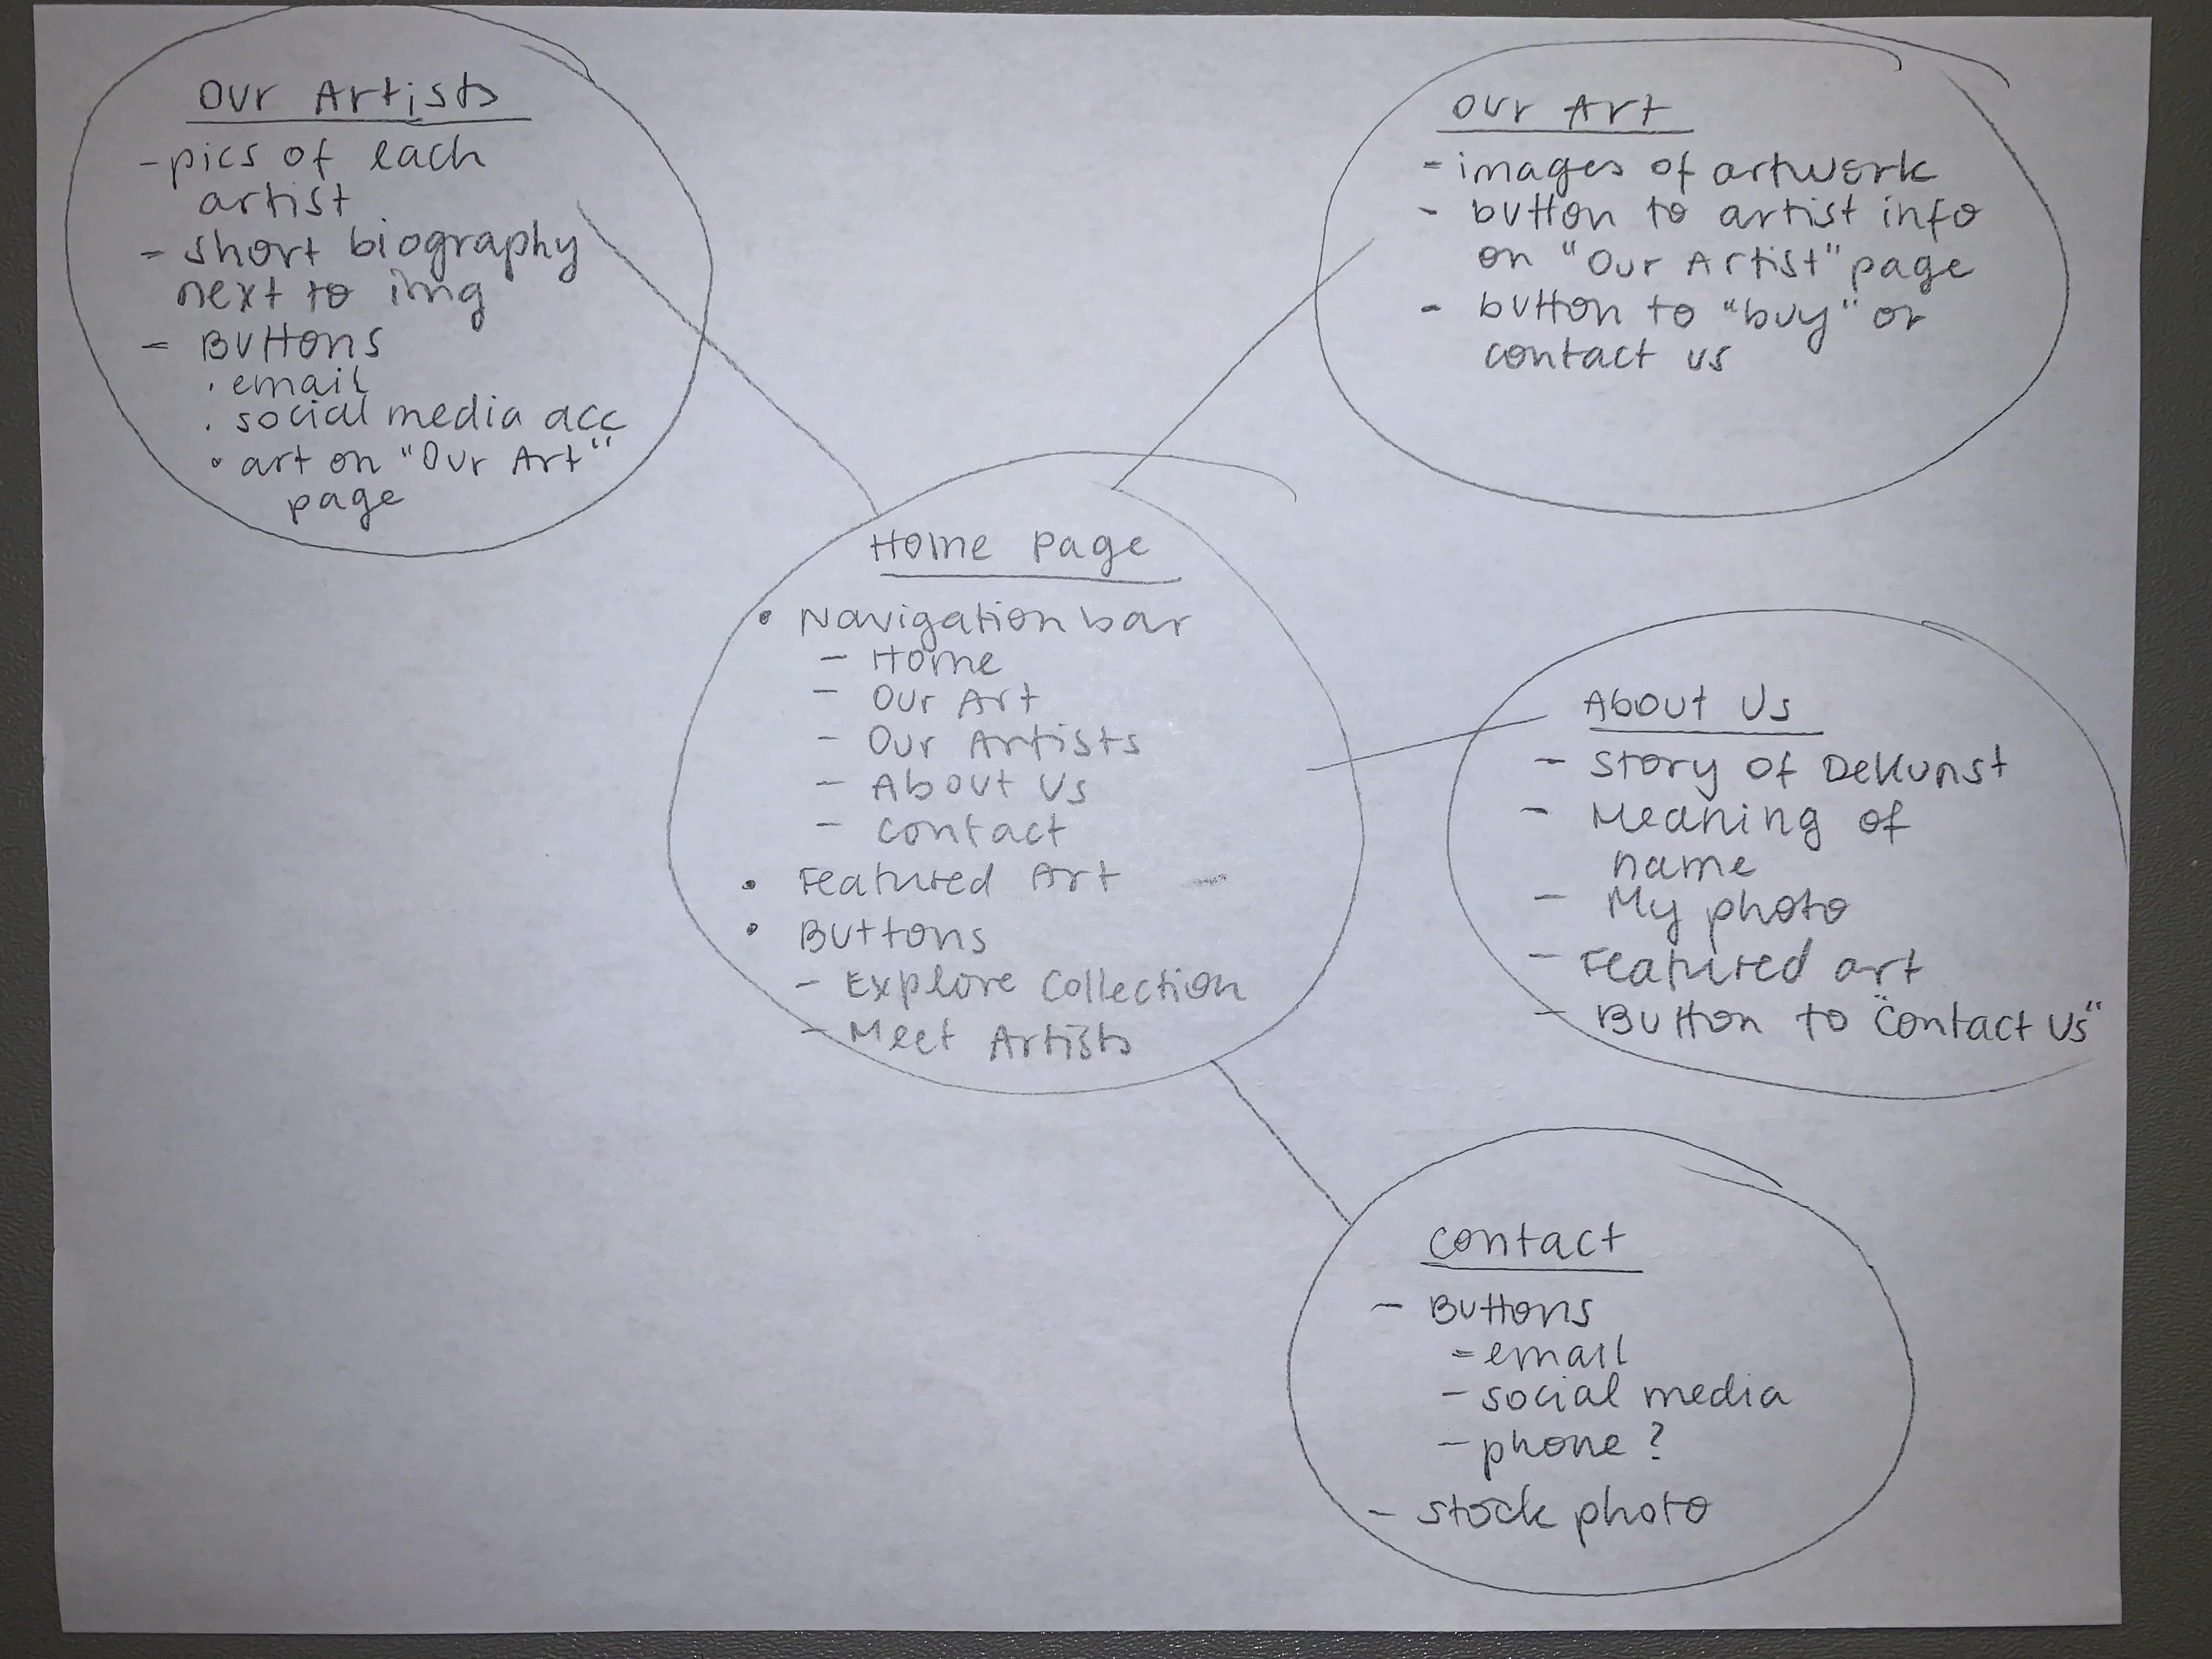 Our Artists
- pics of each
artist
- short biography
next to img
- Buttons
· email
· social media acc
• art on "Our Art"
page
Our Art
- images of artwork
- button to artist info
on "Our Artist" page
- button to "buy" or
contact us
Home Page
• Navigation bar
- Home
- Our Art
- Our Artists
- About Us
- Contact
• Featured Art -
• Buttons
- Explore Collection
- Meet Artists
About Us
- Story of DeKunst
- Meaning of
name
- My photo
- Featured art
- Button to "Contact Us"
Contact
- Buttons
- email
- social media
- phone ?
- stock photo